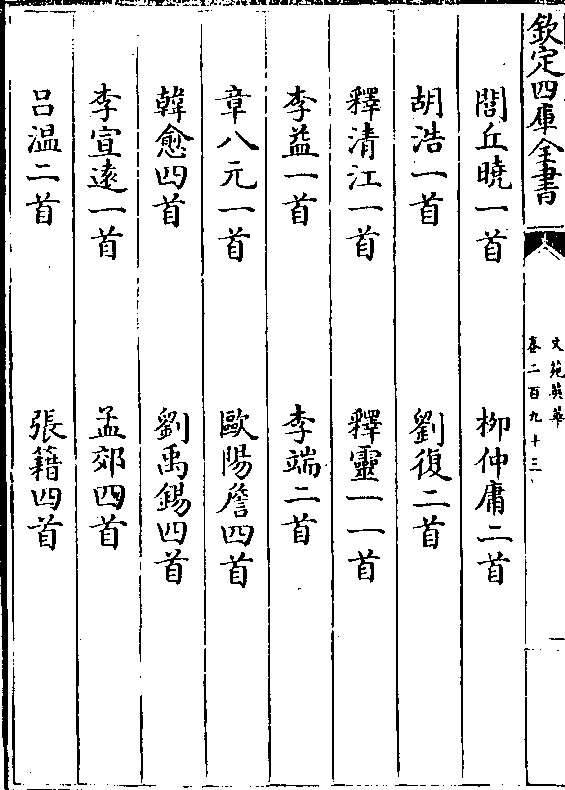 欽定四庫全書
文苑英華
卷二百九十三
一
閻丘曉一首 柳仲庸二首
胡浩一首 劉復二首
釋清江一首 釋靈一一首
李益一首 李端二首
章八元一首 歐陽詹四首
韓愈四首 劉禹錫四首
李宣遠一首 孟郊四首
呂温二首 張籍四首